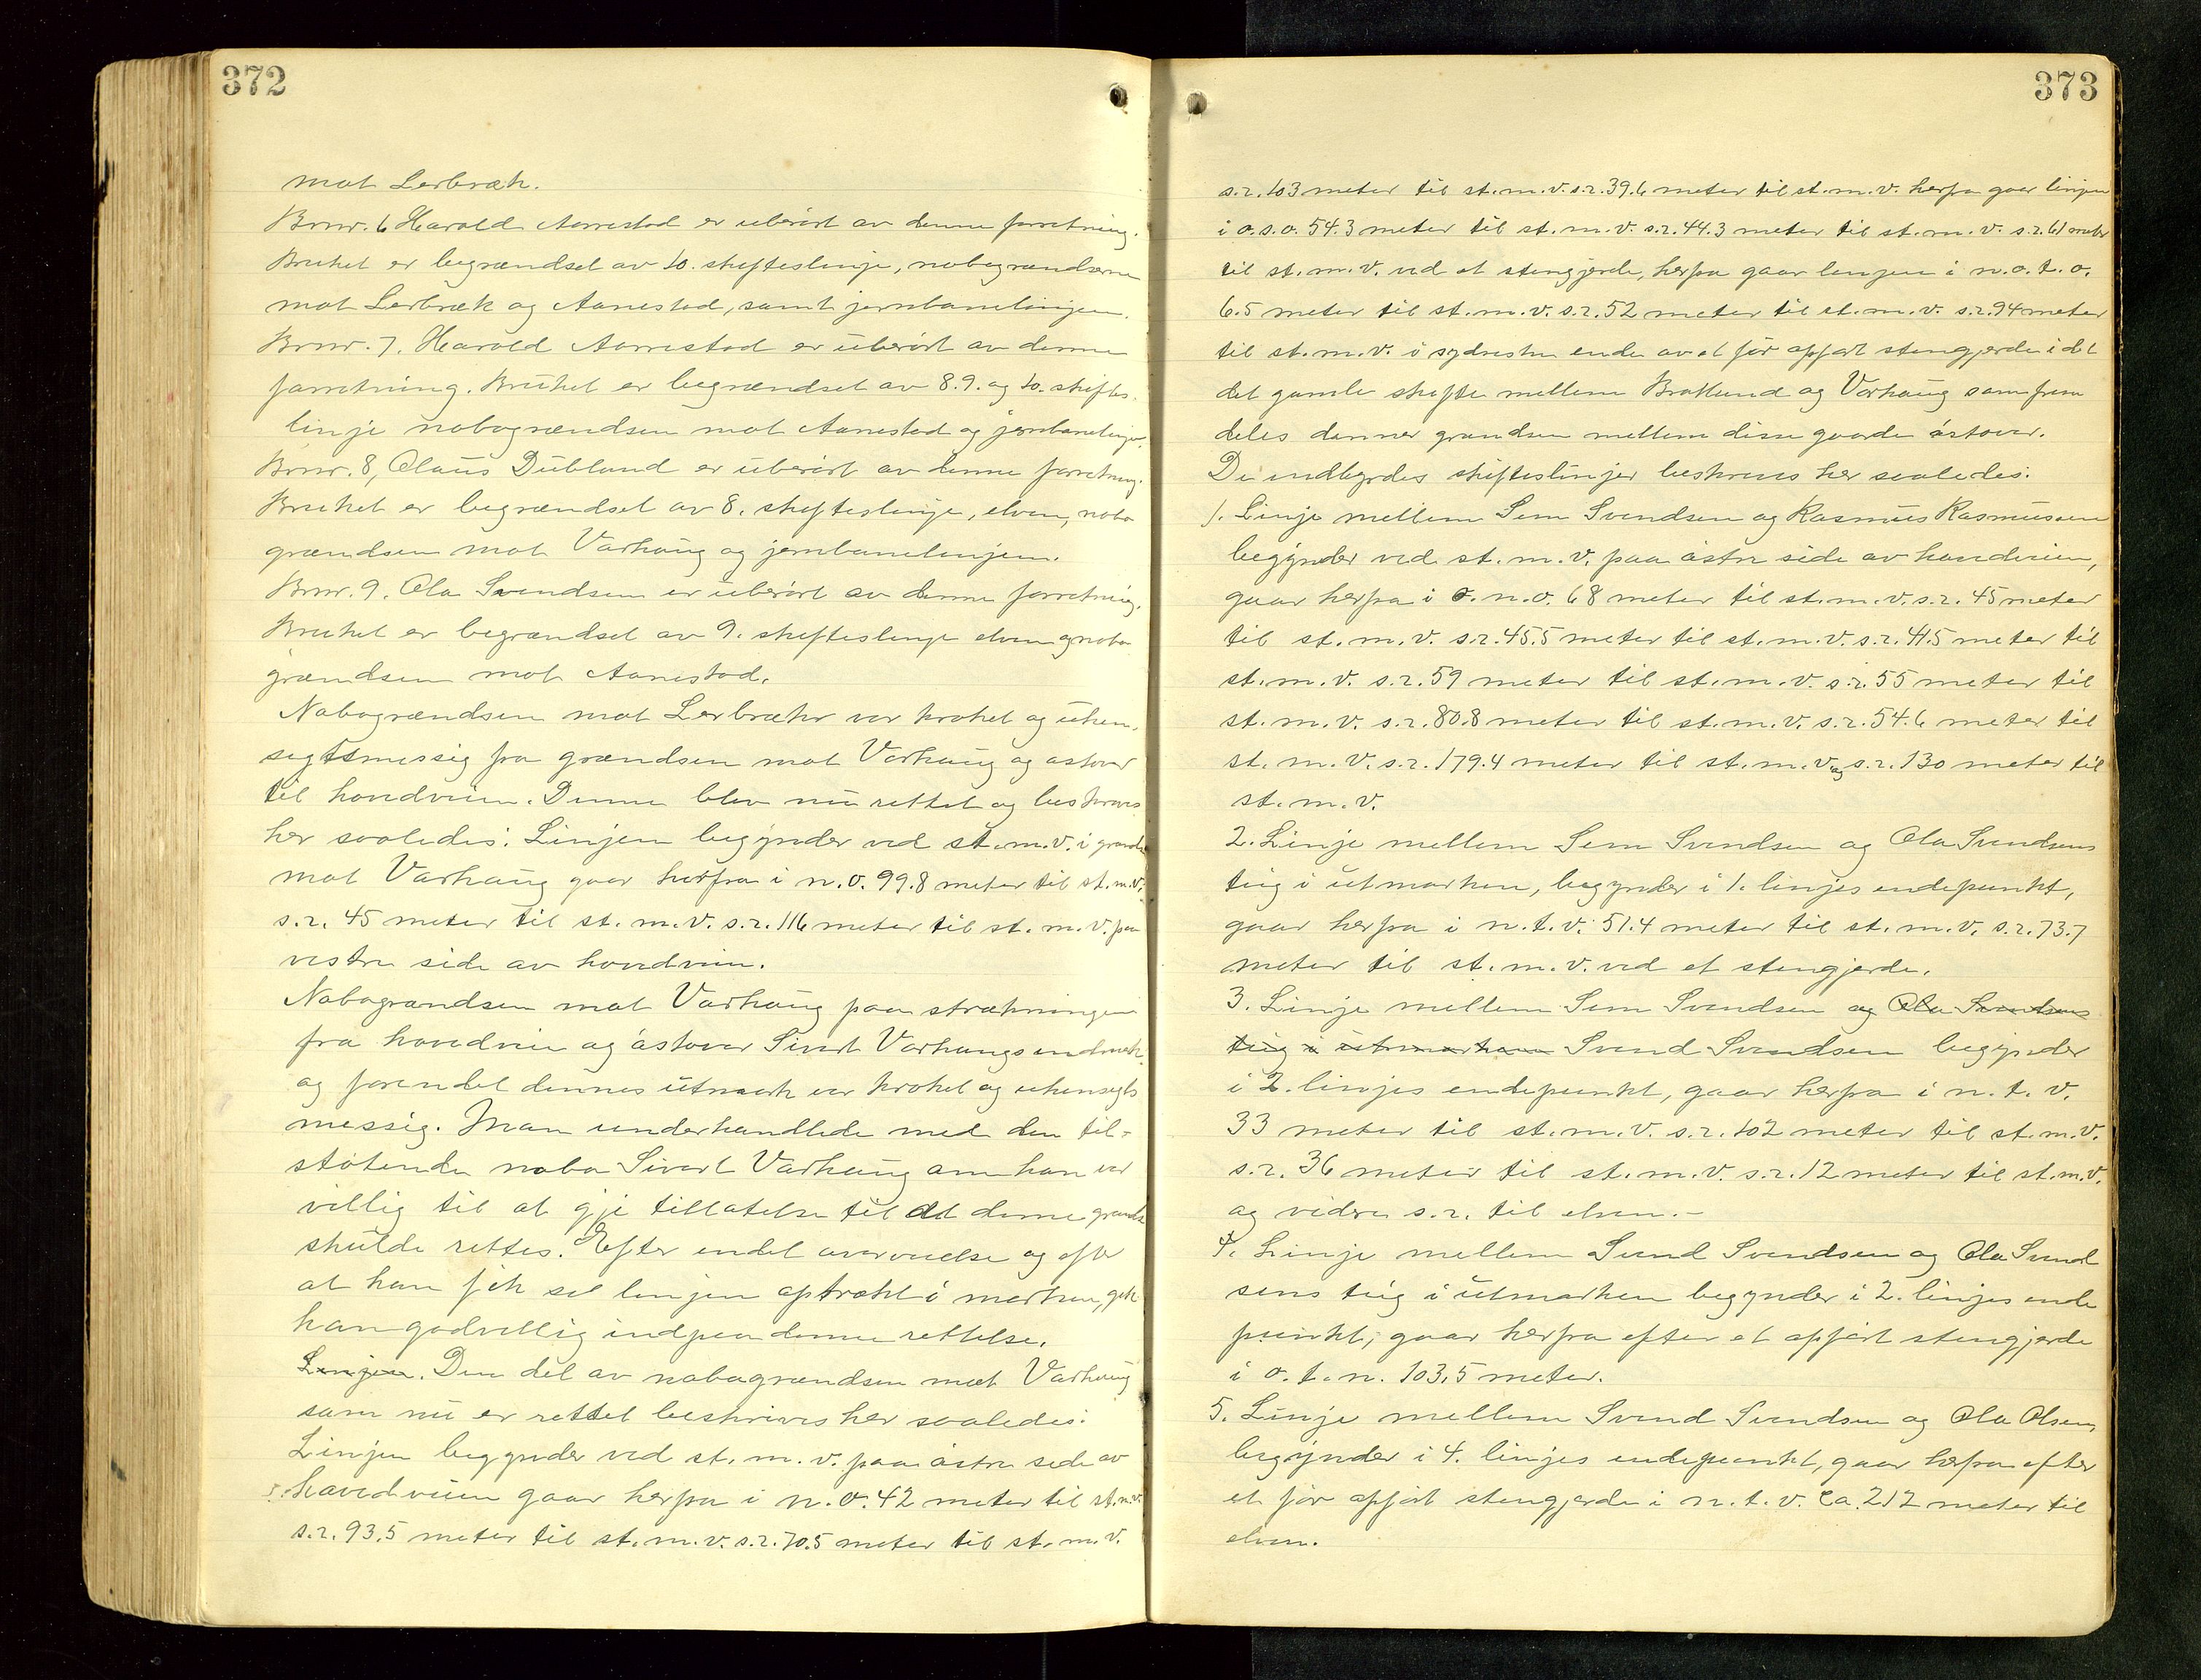 372
mot Lerbræk.
Brnr. 6 Harald Aanestad er uberört av denne forretning.
Bruket er begrændset av 10. skifteslinje, nabogrændserne
mot Lerbræk og Aanestad, samt jernbanelinjen.
Brnr. 7. Harald Aanestad er uberört av denne
forretning. Bruket er begrændset av 8. 9. og 10. skiftes-
linje nabogrændsen mot Aanestad og jernbanelinjen.
Brnr. 8, Olaus Dubland er uberört av denne forretning.
Bruket er begrændset av 8. skifteslinje, elven, nabo
grændsen mot Varhaug og jernbanelinjen.
Brnr. 9. Ola Svendsen er uberört av denne forretning.
Bruket er begrændset av 9. skifteslinje elven og nabo
grændsen mot Aanestad.
Nabogrændsen mot Lerbræk var kroket og uhen-
sigtsmessig fra grændsen mot Varhaug og östover
til hovedveien. Denne blev nu rettet og beskrives
her saaledes: Linjen begynder ved st. m. v. i grændse
mot Varhaug gaar herfra i n. o. 99.8 meter til st. m. v.
s. r. 45 meter til st. m. v. s. r. 116 meter til st. m. v. paa
vestre side av hovedveien.
Nabogrændsen mot Varhaug paa strækningen
fra hovedveien og östover Sivert Varhaugs indmark
og forendel dennes utmark var kroket og uhensigts
messig. Man underhandlede med den til-
stötende nabo Sivert Varhaug om han var
villig til at gje tillatelse til at denne grændse
skulde rettes. Efter endel overveielse og efter
at han fik se linjen optrækt i marken, gik
han godvillig ind paa denne rettelse.
Linjen. Den del av nabogrændsen mot Varhaug
som nu er rettet beskrives her saaledes:
Linjen begynder ved st. m. v. paa östre side av
hovedveien gaar herfra i n. o. 42 meter til st. m. v.
s. r. 93.5 meter til st. m. v. s. r. 70.5 meter til st. m. v.
373
s. r. 103 meter til st. m. v. s. r. 39.6 meter til st. m. v. herfra gaar linjen
i o. s. o. 54.3 meter til st. m. v. s. r. 44.3 meter til st. m. v. s. r. 61 meter
til st. m. v. ved et stengjerde, herfra gaar linjen i n. o. t. o.
6.5 meter til st. m. v. s. r. 52 meter til st. m. v. s. r. 94 meter
til st. m. v. i sydvestre ende av et för opfört stengjerde i det
det gamle skifte mellem Bratland og Varhaug som frem
deles danner grændsen mellem disse gaarde östover.
De indbyrdes skifteslinjer beskrives her saaledes:
1. Linje mellem Sem Svendsen og Rasmus Rasmussen
begynder ved st. m. v. paa östre side av hovedveien,
gaar herfra i o. n. o. 68 meter til st. m. v. s. r. 45 meter
til st. m. v. s. r. 45.5 meter til st. m. v. s. r. 41.5 meter til
st. m. v. s. r. 59 meter til st. m. v. s. r. 55 meter til
st. m. v. s. r. 80.8 meter til st. m. v. s. r. 54.6 meter til
st. m. v. s. r. 179.4 meter til st. m. v. og s. r. 130 meter til
st. m. v.
2. Linje mellem Sem Svendsen og Ola Svendsens
teig i utmarken, begynder i 1. linjes endepunkt,
gaar herfra i n. t. v. 51.4 meter til st. m. v. s. r. 73.7
meter til st. m. v. ved et stengjerde.
3. Linje mellem Sem Svendsen og Ola Svendsens
teig i utmarken Svend Svendsen begynder
i 2. linjes endepunkt, gaar herfra i n. t. v.
33 meter til st. m. v. s. r. 102 meter til st. m. v.
s. r. 36 meter til st. m. v. s. r. 12 meter til st. m. v.
og videre s. r. til elven. -
4. Linje mellem Svend Svendsen og Ola Svend
sens teig i utmarken begynder i 2. linjes ende
punkt, gaar herfra efter et opfört stengjerde
i o. t. n. 103,5 meter.
5. Linje mellem Svend Svendsen og Ola Olsen,
begynder i 4. linjes endepunkt, gaar herfra efter
et för opfört stengjerde i n. t. v. ca. 212 meter til
elven.